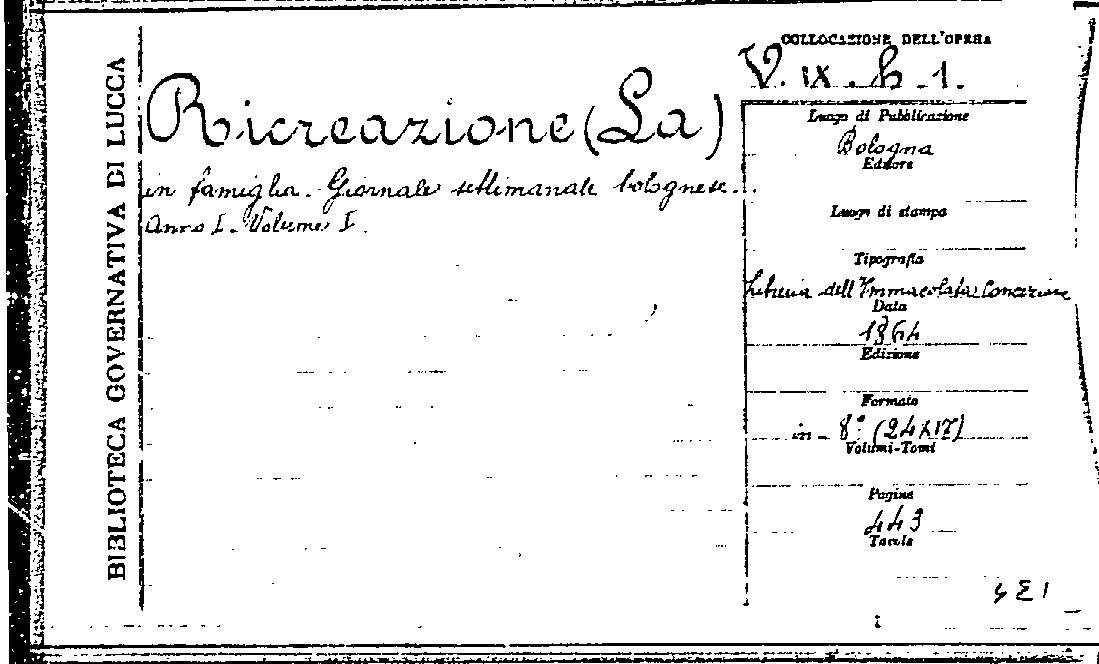 BIBLIOTECA GOVERNATIVA DI LUCCA
Ricreazione (La)
in famiglia. Giornale settimanale bolognese...
Anno I. Volume I.
COLLOCAZIONE DELL'OPERA
V. IX. h. 1.
Luogo di Pubblicazione
Bologna
Editore
Luogo di stampa
Tipografia
Libreria dell'Immacolata Concezione
Data
1864
Edizione
Formato
in 8° (24x17)
Volumi-Tomi
Pagine
443
Tavole